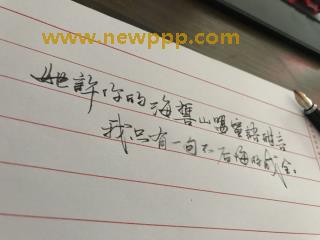 www.newppp.com
她許你的海誓山盟蜜語甜言
我只有一句不后悔的成全。